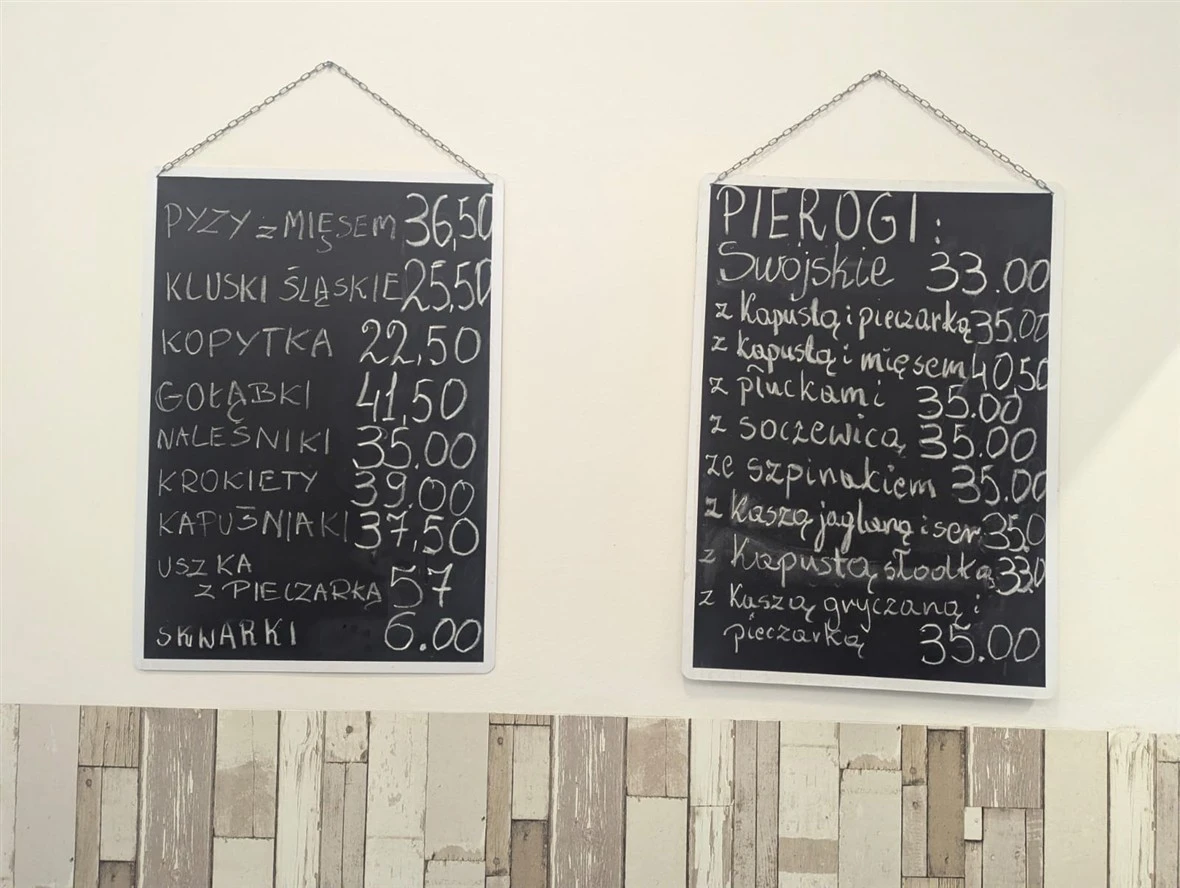 PYZY z MIĘSEM 36,50
KLUSKI ŚLĄSKIE 25,50
KOPYTKA 22,50
GOŁĄBKI 41,50
NALEŚNIKI 35.00
KROKIETY 39.00
KAPUŚNIAKI 37,50
USZKA
z PIECZARKĄ 57
SKWARKI 6.00
PIEROGI:
Swojskie 33.00
z Kapustą i pieczarką 35.00
z kapustą i mięsem 40,50
z płuckami 35.00
z soczewicą 35.00
ze szpinakiem 35.00
z Kaszą jaglaną i ser 35.0
z Kapustą słodką 33.0
z Kaszą gryczaną i
pieczarką 35.00